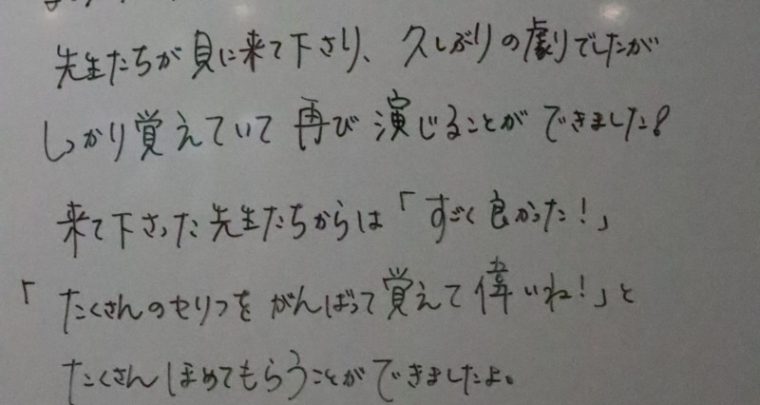 先生たちが見に来て下さり、久しぶりの劇りでしたが
しっかり覚えていて再び演じることができました!
来て下さった先生たちからは「すごく良かった!」
「たくさんのセリフをがんばって覚えて偉いね!」と
たくさんほめてもらうことができましたよ。